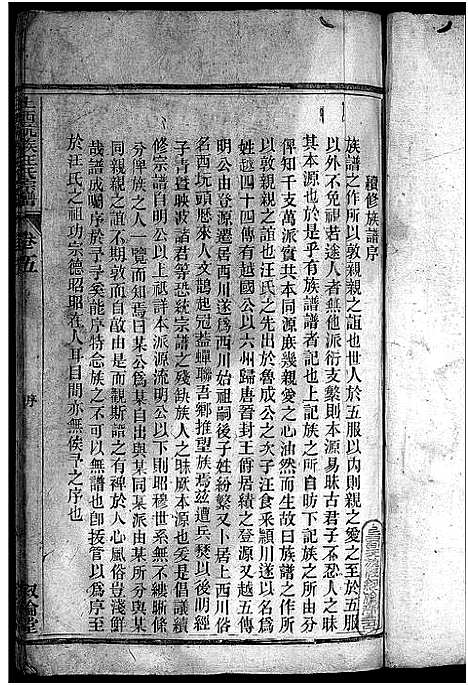 續修族譜序
族譜之作所以敦親親之誼也世人於五服以內則親之愛之至於五服
以外不免視若途人者無他派衍支繁則本源易昧古君子不忍人之昧
其本源也於是乎有族譜譜者記也上記族之所自昉下記族之所由分
俾知千支萬派實共本同源庶幾親愛之心油然而生故曰族譜之作所
以敦親親之誼也汪氏之先出於魯成公之次子汪食采潁川遂以名為
姓越四十四傳有越國公以六州歸唐晉封王爵居績之登源越五傳
明公由登源遷居西川遂為西川始祖嗣後子姓紛繁又卜居上西川俗
名西坑頭歷來人文鵲起冠蓋蟬聯吾鄉推望族焉茲遭兵燹以後明經
子青暨映波諸君等恐統宗譜之殘缺族人之昧厥本源也爰倡議續
修宗譜自明公以上祇詳本派源流明公以下則昭穆世系無不縷晰條
分俾族之人一覽而知曰某公為某自出與某同某派由某所分與某
同親親之誼不敢而自敦由是而觀斯譜之有裨於人心風俗豈淺鮮
哉譜成囑序於予予奚能序特念族之不可以無譜也卽援管以為序至
於汪氏之祖功宗德昭昭在人耳目間亦無俟予之序也
卷五
序
敘倫堂